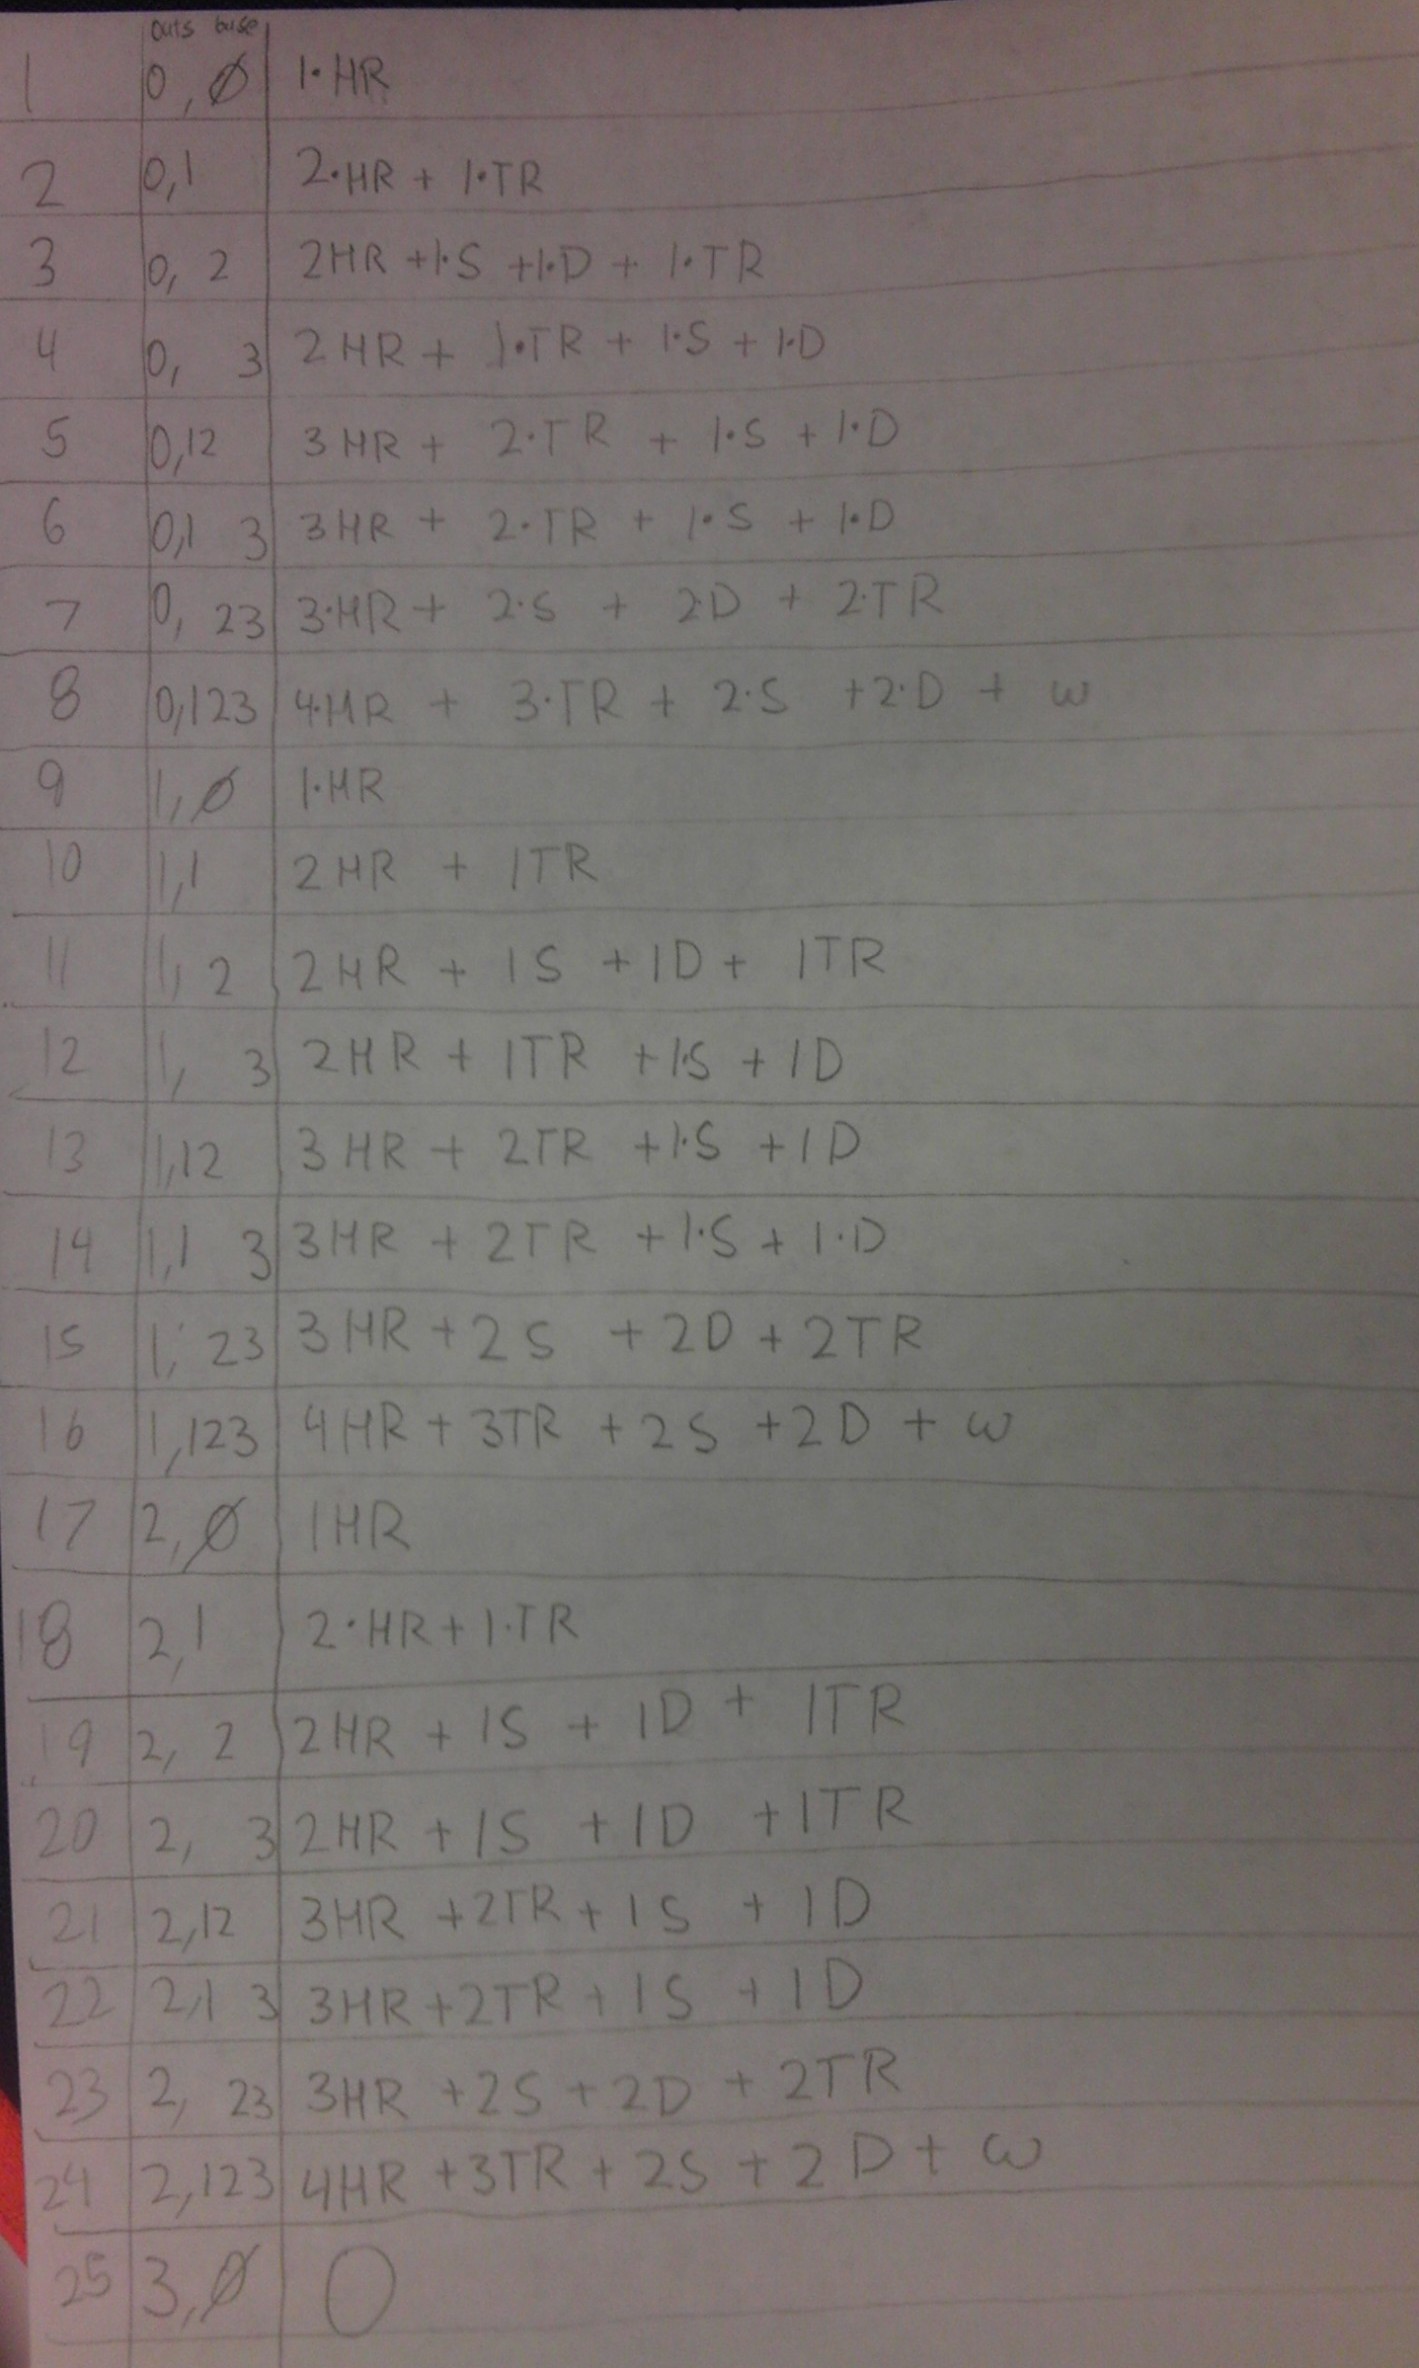 outs base
1 0,Ø 1·HR
2 0,1 2·HR + 1·TR
3 0, 2 2HR +1·S +1·D + 1·TR
4 0, 3 2HR + 1·TR + 1·S + 1·D
5 0,12 3HR + 2·TR + 1·S + 1·D
6 0,1 3 3HR + 2·TR + 1·S + 1·D
7 0, 23 3·HR + 2·S + 2·D + 2·TR
8 0,123 4·HR + 3·TR + 2·S +2·D + w
9 1,Ø 1·HR
10 1,1 2HR + 1TR
11 1, 2 2HR + 1S +1D + 1TR
12 1, 3 2HR + 1TR +1·S + 1D
13 1,12 3HR + 2TR +1·S +1D
14 1,1 3 3HR + 2TR +1·S + 1·D
15 1, 23 3HR +2S +2D +2TR
16 1,123 4HR + 3TR +2S +2D + w
17 2,Ø 1HR
18 2,1 2·HR + 1·TR
19 2, 2 2HR + 1S + 1D + 1TR
20 2, 3 2HR + 1S +1D +1TR
21 2,12 3HR +2TR + 1S + 1D
22 2,1 3 3HR +2TR + 1S + 1D
23 2, 23 3HR +2S +2D + 2TR
24 2,123 4HR +3TR + 2S + 2D + w
25 3,Ø 0